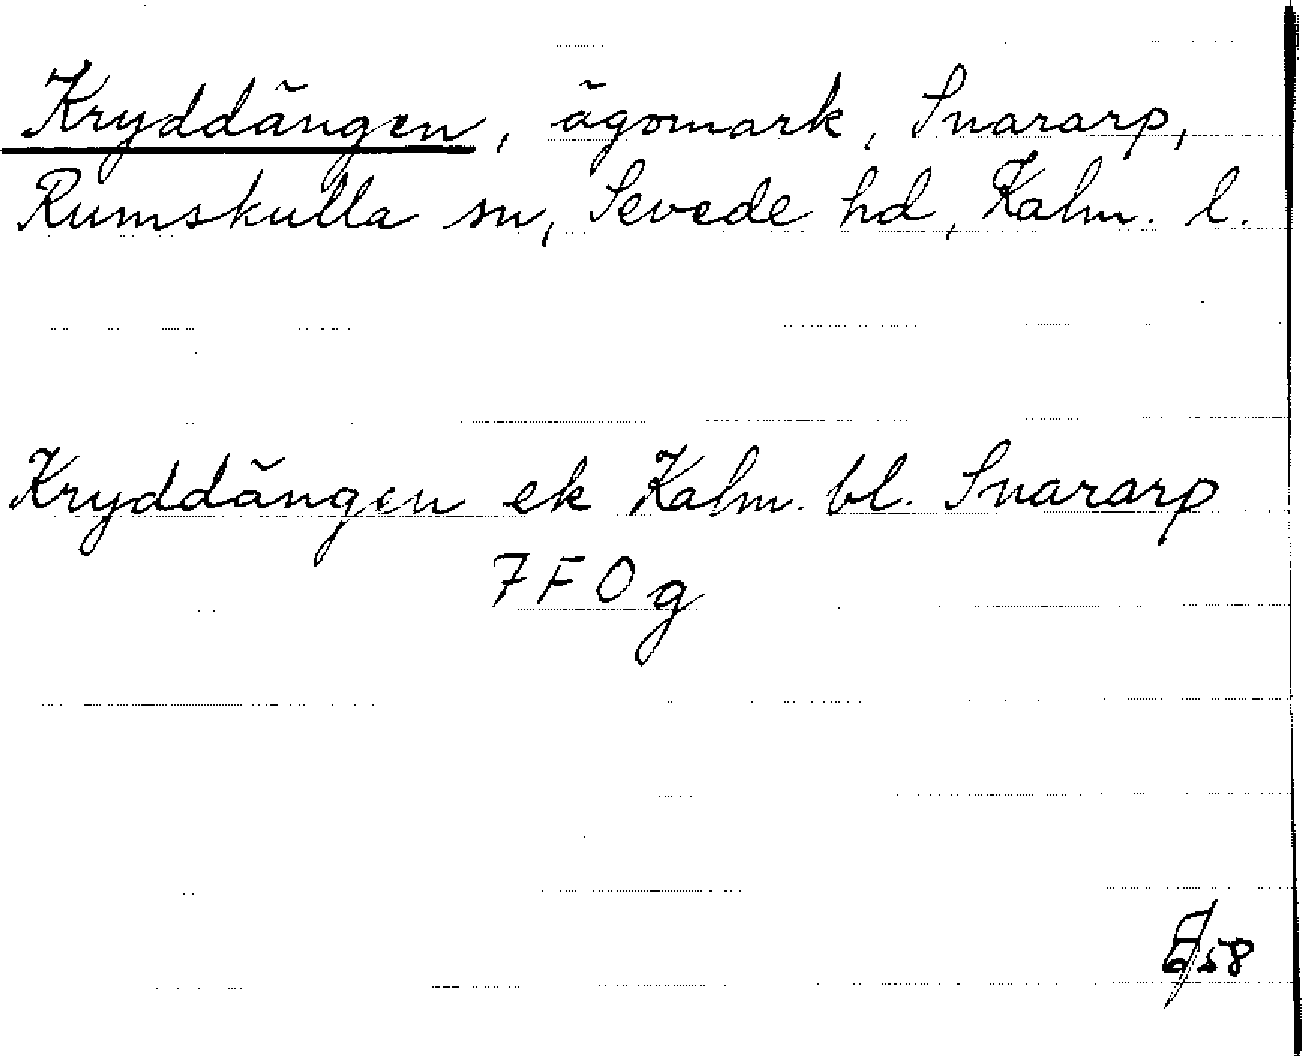 Kryddängen, ägomark, Snararp,
Rumskulla sn, Sevede hd, Kalm. l.
Kryddängen ek Kalm. bl. Snararp
7 F 0 g
58